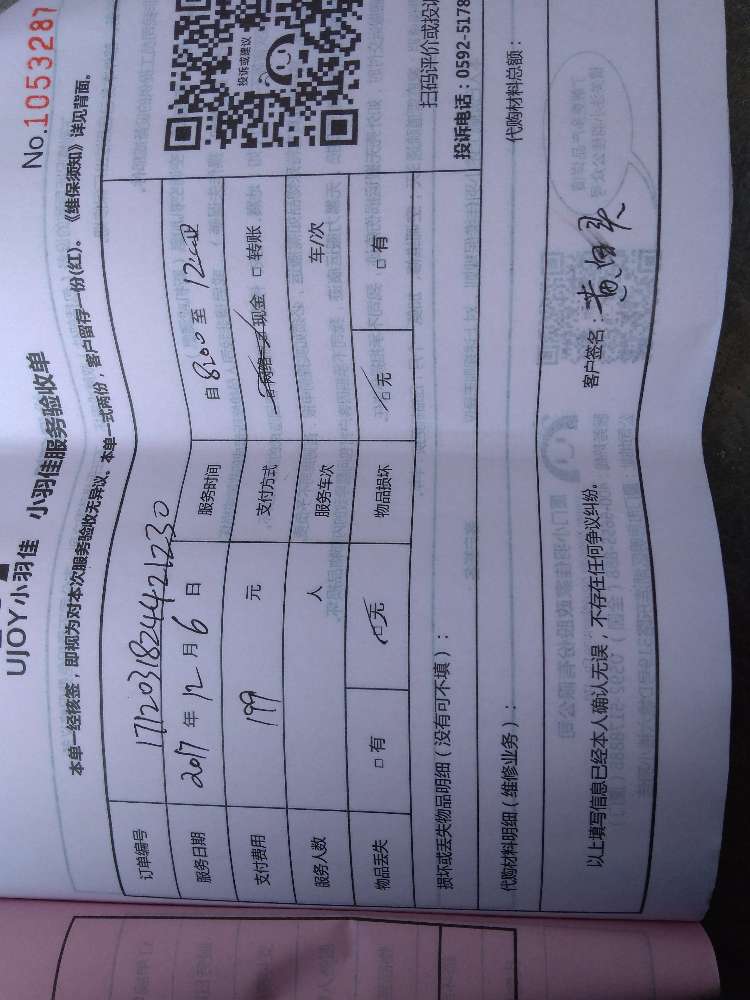 No.1053287
UJOY小羽佳 小羽佳服务验收单
本单一经核签，即视为对本次服务验收无异议。本单一式两份，客户留存一份(红)。《维保须知》详见背面。
订单编号 1712031824421230
服务日期 2017 年 12 月 6 日 服务时间 自 8:00 至 12:00
支付费用 199 元 支付方式 □网络 □现金 □转账
服务人数 人 服务车次 车/次
物品丢失 □有 □无 物品损坏 □无 □有
投诉或建议
扫码评价或投诉
投诉电话：0592-5178
损坏或丢失物品明细（没有可不填）：
代购材料明细（维修业务）： 代购材料总额：
以上填写信息已经本人确认无误，不存在任何争议纠纷。 客户签名：黄